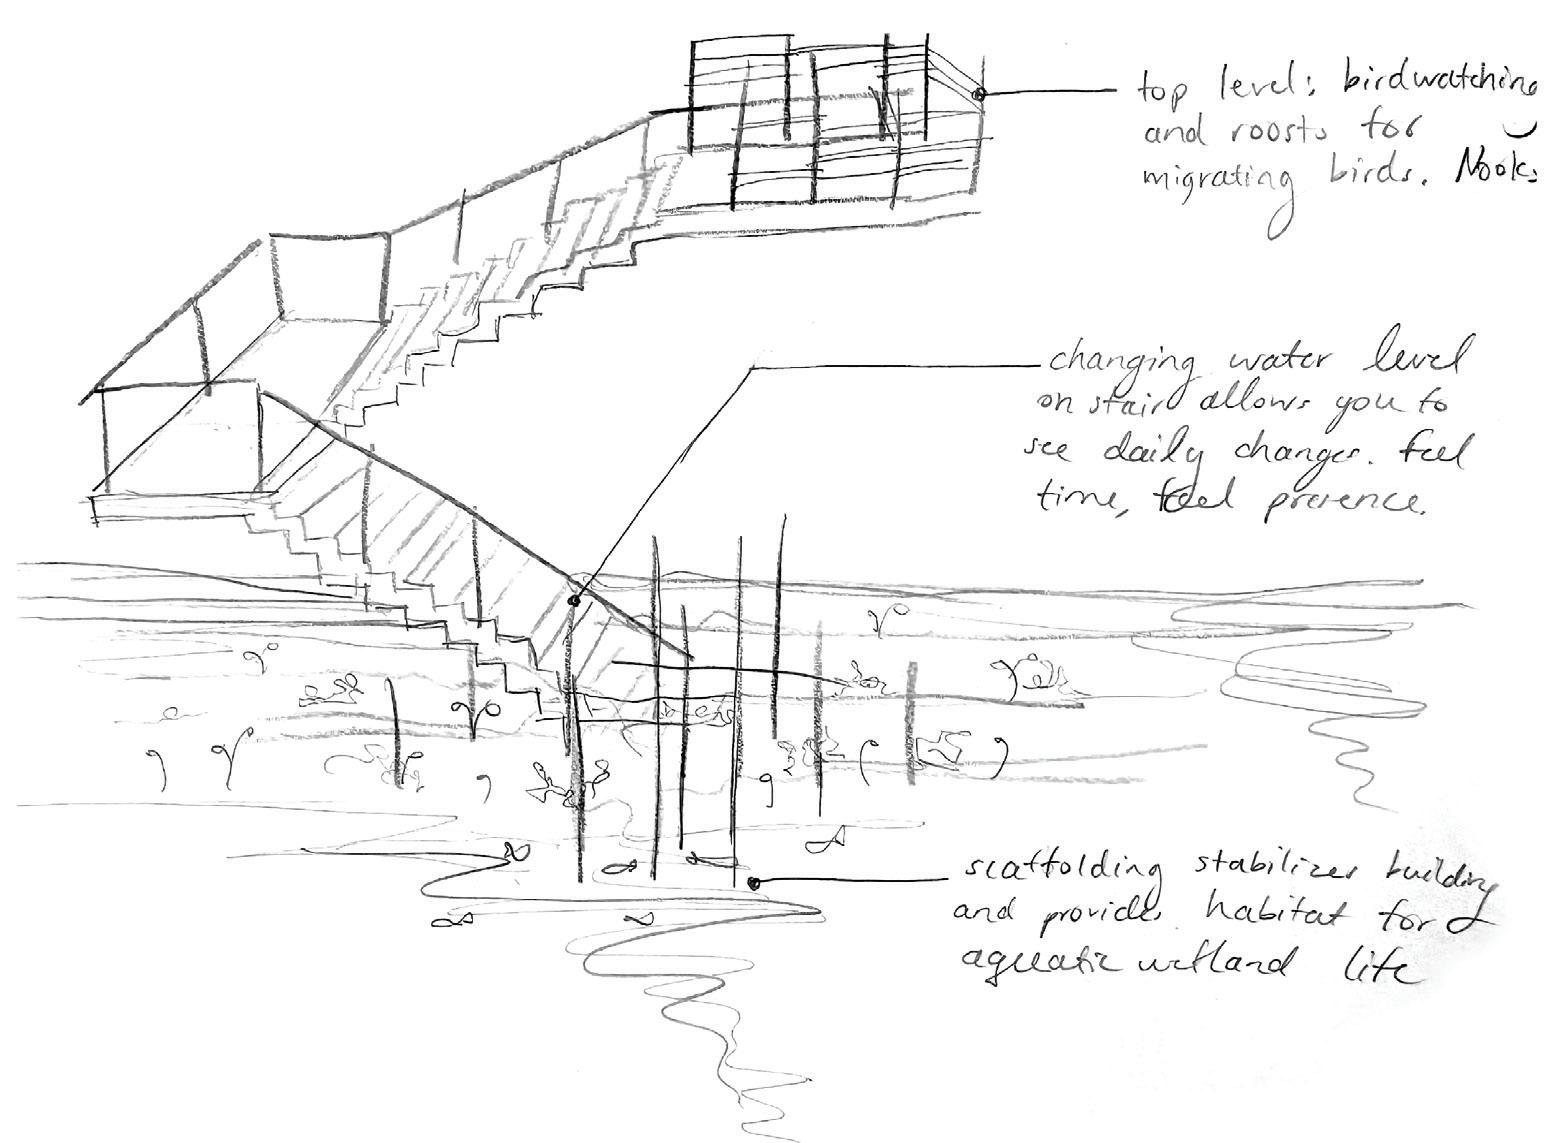 top level: birdwatching
and roosts for
migrating birds. Nooks
changing water level
on stair allows you to
see daily changes. feel
time, feel presence.
scaffolding stabilizes building
and provides habitat for
aquatic wetland life